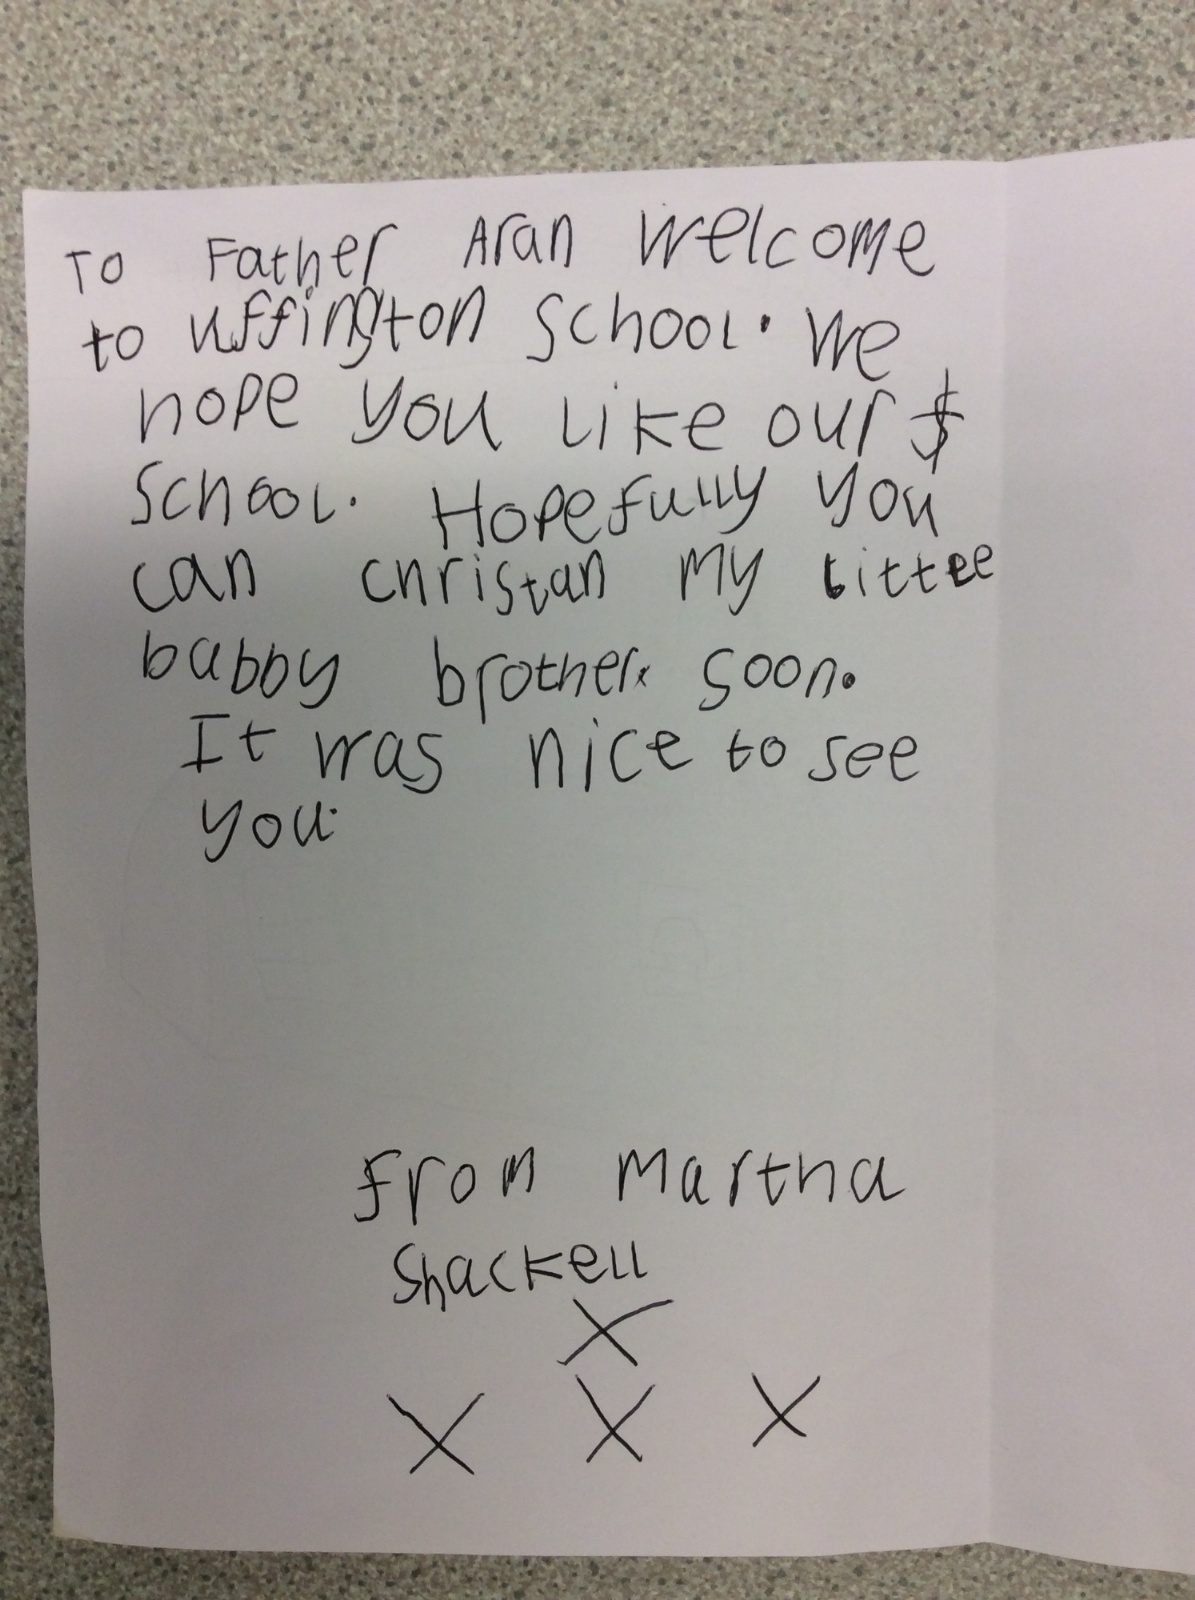 To Father Aran welcome
to uffington school. We
hope you like our
school. Hopefully you
can christan my little
babby brother soon.
It was nice to see
you.
From Martha
Shackell
X
X X X